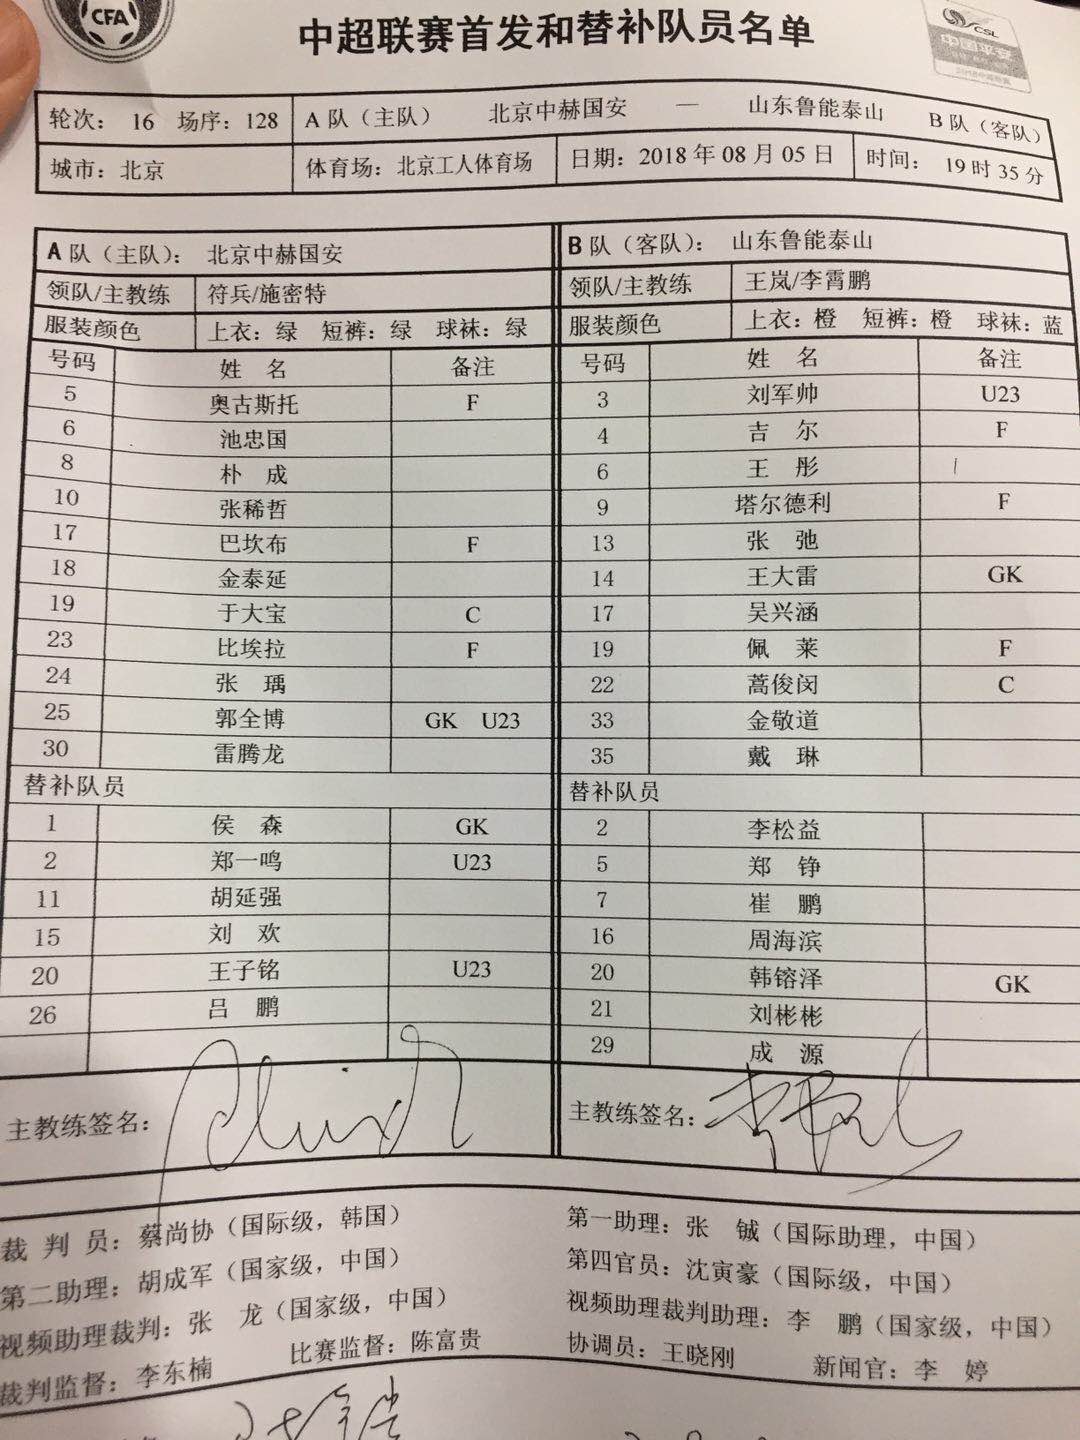 CFA
中超联赛首发和替补队员名单
CSL
中国平安
轮次： 16 场序：128 A 队（主队） 北京中赫国安 — 山东鲁能泰山 B 队（客队）
城市：北京 体育场：北京工人体育场 日期：2018 年 08 月 05 日 时间： 19 时 35 分
A 队（主队）： 北京中赫国安 B 队（客队）： 山东鲁能泰山
领队/主教练 符兵/施密特 领队/主教练 王岚/李霄鹏
服装颜色 上衣：绿 短裤：绿 球袜：绿 服装颜色 上衣：橙 短裤：橙 球袜：蓝
号码 姓 名 备注 号码 姓 名 备注
5 奥古斯托 F 3 刘军帅 U23
6 池忠国 4 吉 尔 F
8 朴 成 6 王 彤
10 张稀哲 9 塔尔德利 F
17 巴坎布 F 13 张 弛
18 金泰延 14 王大雷 GK
19 于大宝 C 17 吴兴涵
23 比埃拉 F 19 佩 莱 F
24 张 瑀 22 蒿俊闵 C
25 郭全博 GK U23 33 金敬道
30 雷腾龙 35 戴 琳
替补队员 替补队员
1 侯 森 GK 2 李松益
2 郑一鸣 U23 5 郑 铮
11 胡延强 7 崔 鹏
15 刘 欢 16 周海滨
20 王子铭 U23 20 韩镕泽 GK
26 吕 鹏 21 刘彬彬
29 成 源
主教练签名： 主教练签名：
裁 判 员：蔡尚协（国际级，韩国） 第一助理：张 铖（国际助理，中国）
第二助理：胡成军（国家级，中国） 第四官员：沈寅豪（国际级，中国）
视频助理裁判：张 龙（国家级，中国） 视频助理裁判助理：李 鹏（国家级，中国）
裁判监督：李东楠 比赛监督：陈富贵 协调员：王晓刚 新闻官：李 婷